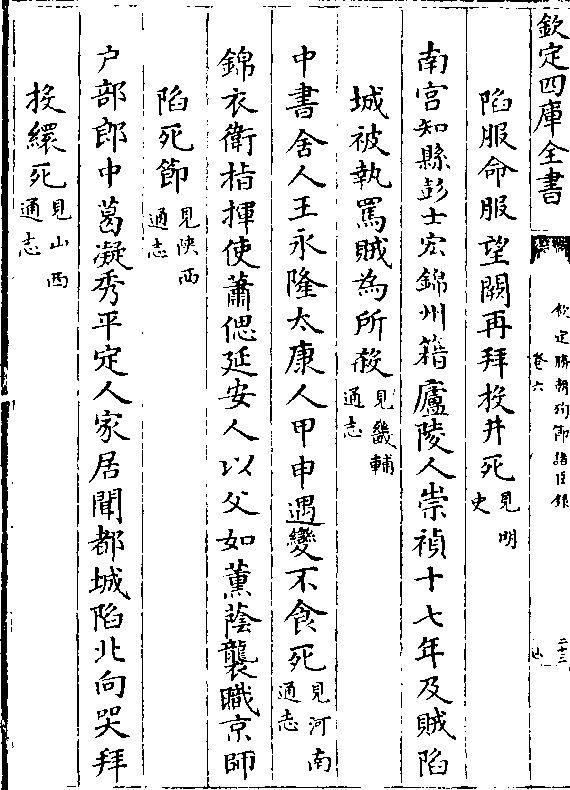 欽定四庫全書
欽定勝朝殉節諸臣錄
卷六
二十三
陷服命服望闕再拜投井死見明史
南宫知縣彭士宏錦州籍廬陵人崇禎十七年及賊陷
城被執罵賊為所殺見畿輔通志
中書舍人王永隆太康人甲申遇變不食死見河南通志
錦衣衛指揮使蕭偲延安人以父如薰蔭襲職京師
陷死節見陜西通志
户部郎中葛凝秀平定人家居聞都城陷北向哭拜
投繯死見山西通志